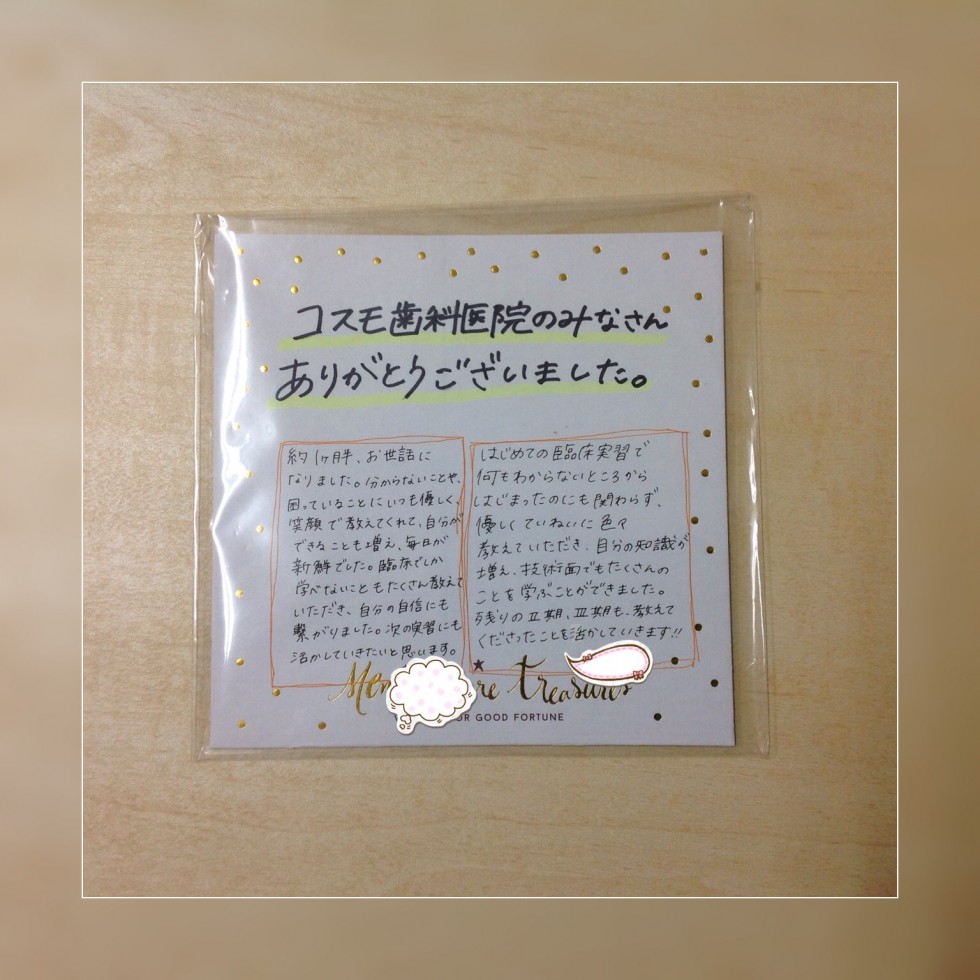 コスモ歯科医院のみなさん
ありがとうございました。
約1ヶ月半、お世話に
なりました。分からないことや、
困っていることにいつも優しく、
笑顔で教えてくれて、自分が
できることも増え、毎日が
新鮮でした。臨床でしか
学べないこともたくさん教えて
いただき、自分の自信にも
繋がりました。次の実習にも
活かしていきたいと思います。
はじめての臨床実習で
何もわからないところから
はじまったのにも関わらず、
優しくていねいに色々
教えていただき、自分の知識が
増え、技術面でもたくさんの
ことを学ぶことができました。
残りのⅡ期、Ⅲ期も、教えて
くださったことを活かしていきます!!
Treasures
GOOD FORTUNE